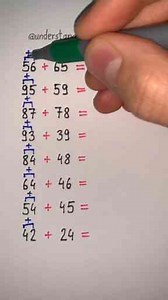 @understan
56 + 65 =
95 + 59 =
87 + 78 =
93 + 39 =
84 + 48 =
64 + 46 =
54 + 45 =
42 + 24 =